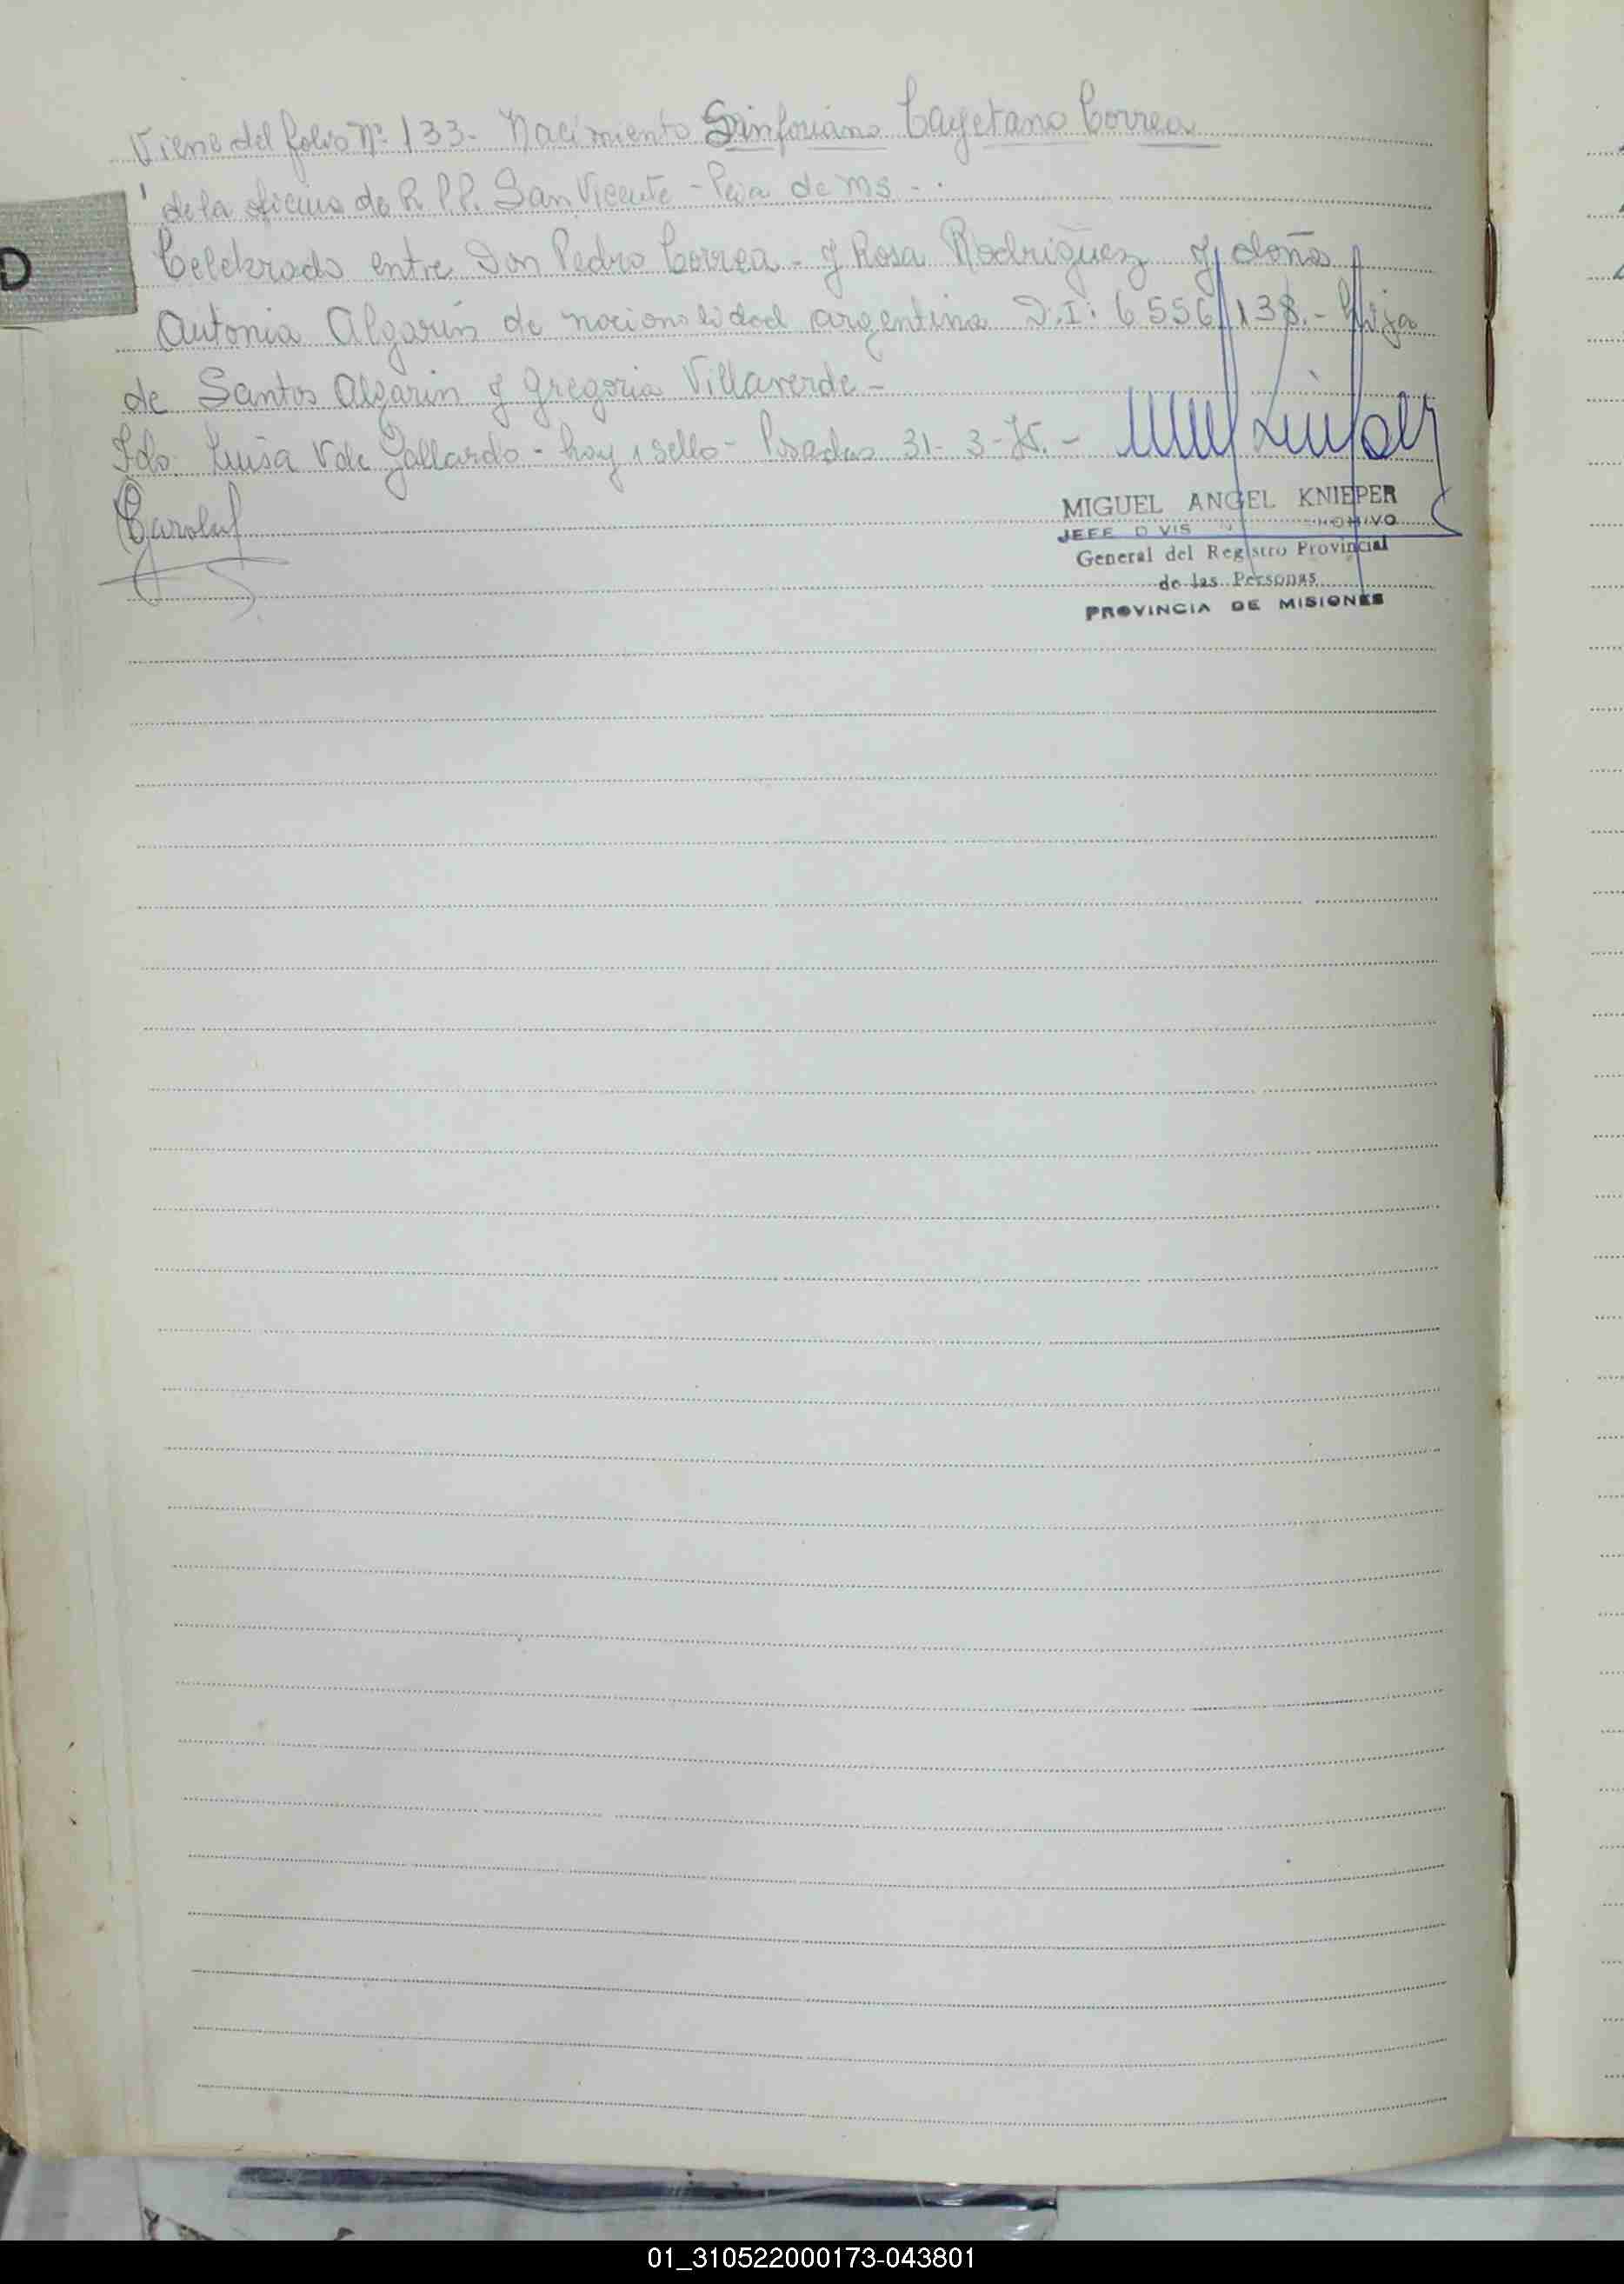 Viene del folio Nº 133- Nacimiento Sinforiano Cayetano Correa
de la oficina de R.P.P. San Vicente - Pcia de Ms -.
Celebrado entre Don Pedro Correa - y Rosa Rodriguez y doña
Antonia Algarin de nacionalidad argentina D.I: 6556138.- hija
de Santos Algarin y Gregoria Villaverde-
Fdo. Luisa V de Gallardo - hay 1 sello - Posadas 31-3-75.-
MIGUEL ANGEL KNIEPER
JEFE
General del Registro Provincial
de las Personas
PROVINCIA DE MISIONES
D
01_310522000173-043801